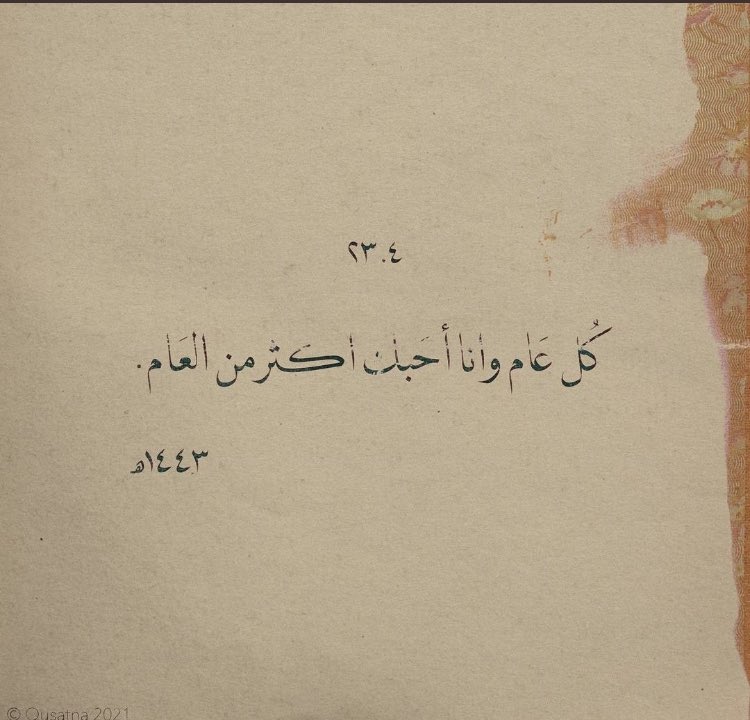 ٢٣.٤
كُل عَام وانا أحَبك اكثر من العَام.
١٤٤٣هـ
© Qusatna 2021